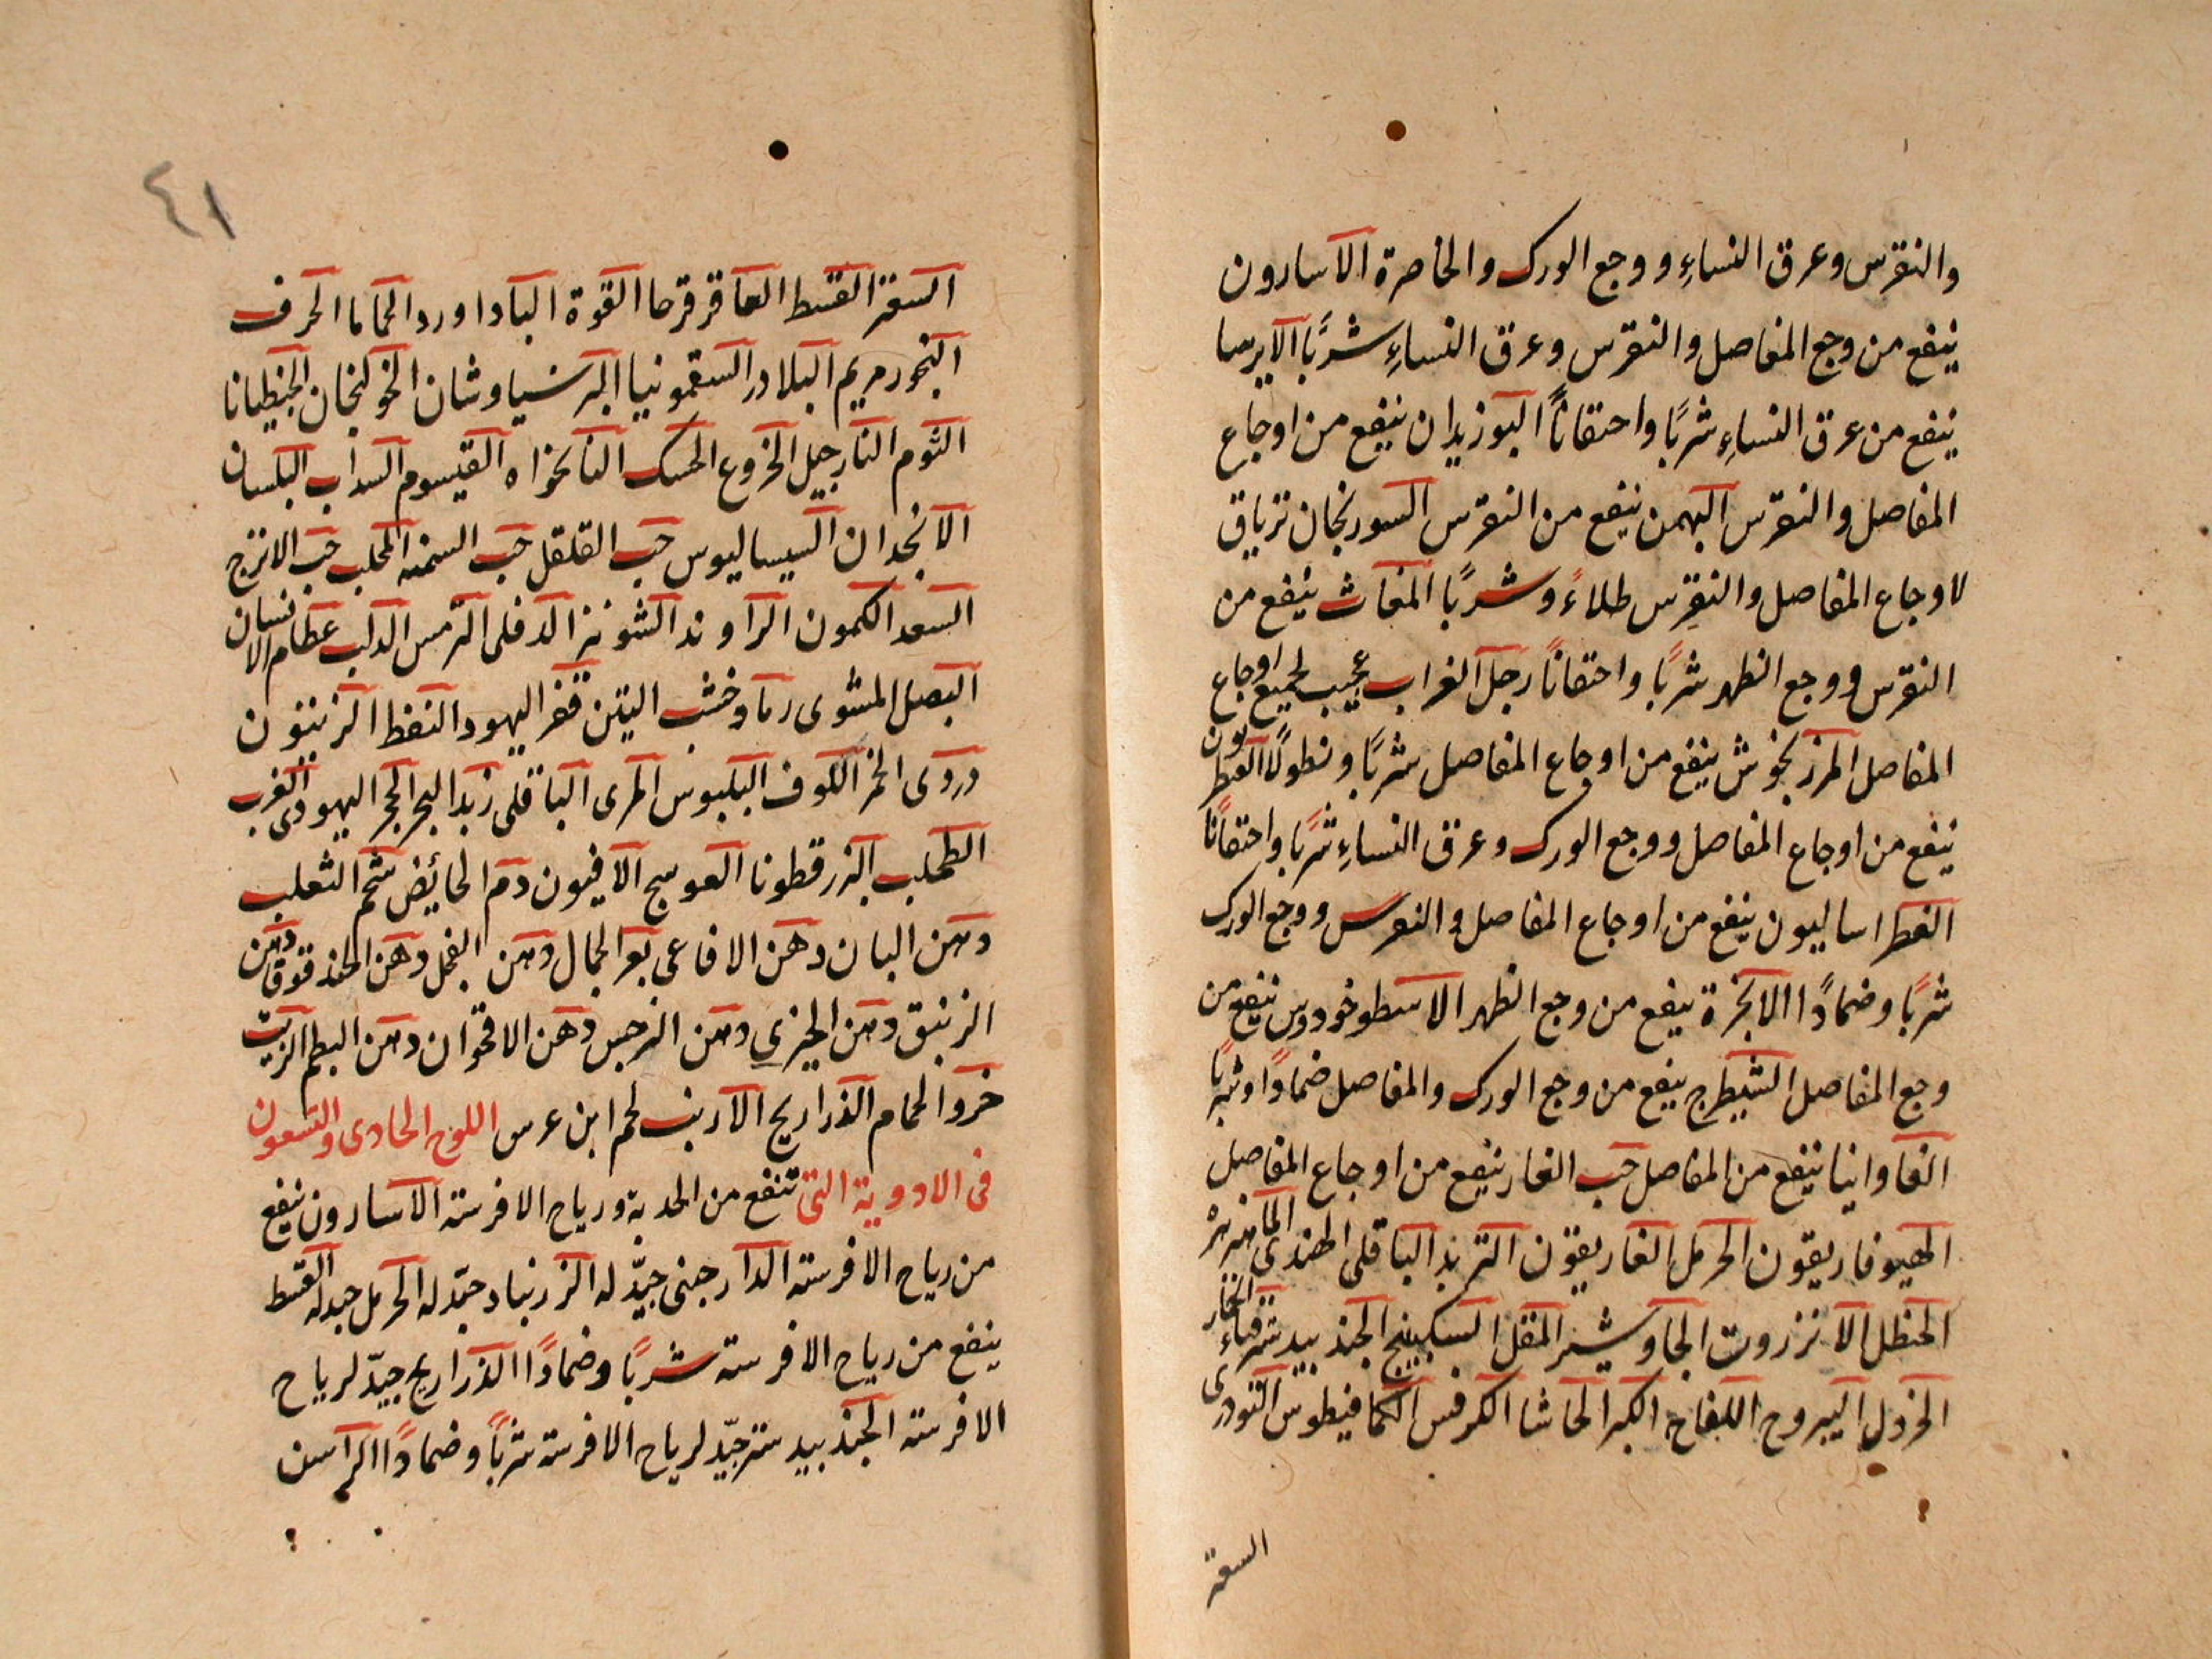 والنقرس وعرق النساءِ ووجع الورك والخاصرة الآسارون
ينفع من وجع المفاصل والنقرس وعرق النساءِ شربًا الآيرسا
ينفع من عرق النساءِ شربًا واحتقانًا البوزيدان ينفع من اوجاع
المفاصل والنقرس البهمن ينفع من النقرس السورنجان ترياق
لاوجاع المفاصل والنقرس طلاءً وشربًا المغاث ينفع من
النقرس ووجع الظهر شربًا واحتقانًا رجل الغراب عجيب لجميع اوجاع
المفاصل المرزنجوش ينفع من اوجاع المفاصل شربًا ونطولًا القنطريون
ينفع من اوجاع المفاصل ووجع الورك وعرق النساءِ شربًا واحتقانًا
الفطراساليون ينفع من اوجاع المفاصل والنقرس ووجع الورك
شربًا وضمادًا الانجرة ينفع من وجع الظهر الاسطوخودوس ينفع من
وجع المفاصل الشيطرج ينفع من وجع الورك والمفاصل ضمادًا وشربًا
الفاوانيا ينفع من المفاصل حب الغار ينفع من اوجاع المفاصل
الهيوفاريقون الحرمل الغاريقون التربد الباقلى الهندى الماهيزهره
الحنظل الانزروت الجاوشير المقل السكبينج الجندبيدستر قثاء الحمار
الخردل اليبروح اللفاح الكبر الحاشا الكرفس الكمافيطوس التودرى
السعتر
٤١
السعتر القسط العاقرقرحا القوة الباداورد الحماما الحرف
البخور مريم البلادر السقمونيا البرسياوشان الخولنجان الجنطيانا
الثوم النارجيل الخروع الحسك النانخواه القيسوم السداب البلسان
الانجدان السيساليوس حب القلقل حب السمنه المحلب حب الاترج
السعد الكمون الراوند الشونيز الدفلى الترمس الدلب عظام الانسان
البصل المشوى رماد خشب التين قفر اليهود النفط الزيتون
دردى الخمر اللوف البلبوس المرى الباقلى زبد البحر الحجر اليهودى الغرب
الطحلب البزرقطونا العوسج الافيون دم الحائض شحم الثعلب
دهن البان دهن الافاعى بعر الجمال دهن الفجل دهن الحندقوقا دهن
الزنبق دهن الخيرى دهن النرجس دهن الاقحوان دهن البطم الزيت
خرو الحمام الذراريح الارنب لحم ابن عرس اللوح الحادى والتسعون
فى الادوية التى تنفع من الحدبة ورياح الافرسته الآسارون ينفع
من رياح الافرسته الدارجينى جيّد له الزرنباد جيّد له الحرمل جيد له القسط
ينفع من رياح الافرسته شربًا وضمادًا الذراريح جيّد لرياح
الافرسته الجندبيدستر جيّد لرياح الافرسته شربًا وضمادًا الراسن